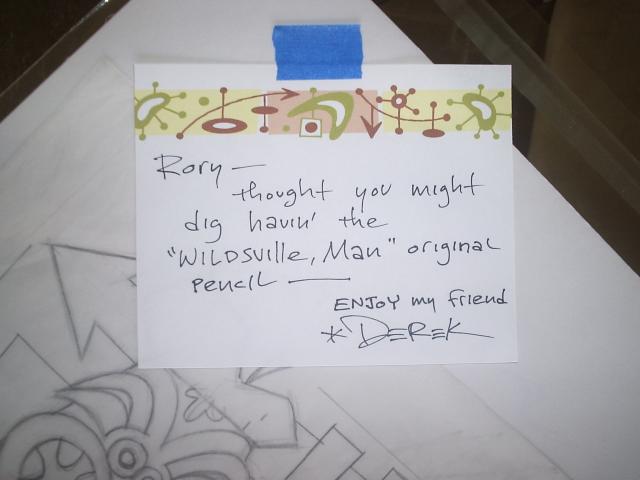 Rory —
thought you might
dig havin' the
"WILDSVILLE, MAN" original
pencil —
ENJOY my friend
*DEREK